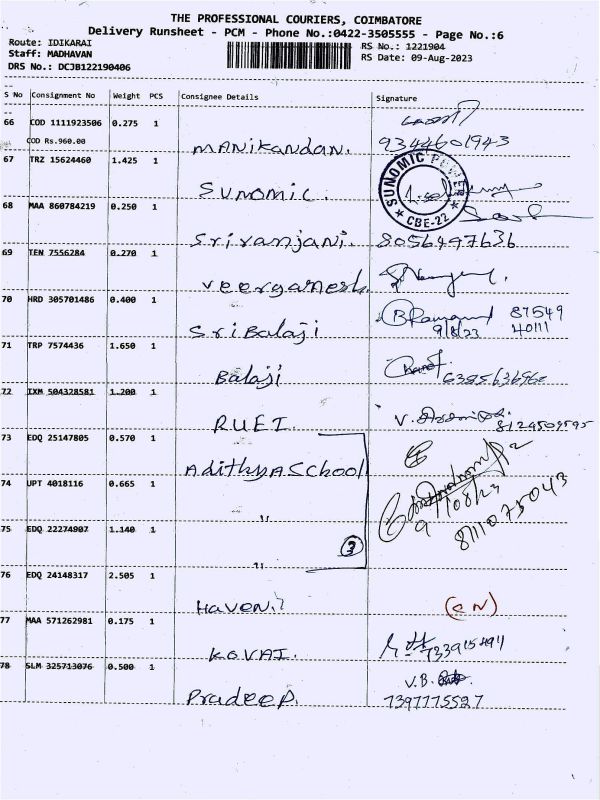 THE PROFESSIONAL COURIERS, COIMBATORE
Delivery Runsheet - PCM - Phone No.:0422-3505555 - Page No.:6
Route: IDIKARAI
RS No.: 1221904
Staff: MADHAVAN
RS Date: 09-Aug-2023
DRS No.: DCJB122190406
S No Consignment No Weight PCS Consignee Details Signature
66 COD 1111923506 0.275 1
COD Rs.960.00
Manikandan. 9344601943
67 TRZ 15624460 1.425 1
SUNOMIC
CBE-22
Sunomic.
68 MAA 860784219 0.250 1
Srivanjani. 8056497636
69 TEN 7556284 0.270 1
Veerganesh.
70 HRD 305701486 0.400 1
87549
40111
9/8/23
Sri Balaji
71 TRP 7574436 1.650 1
Balaji
72 IXM 504328581 1.200 1
RUEI.
73 EDQ 25147805 0.570 1
Adithya School
74 UPT 4018116 0.665 1
9/08/23
8111075043
"
75 EDQ 22274907 1.140 1
3
"
76 EDQ 24148317 2.505 1
(CN)
77 MAA 571262981 0.175 1
KOVAI.
78 SLM 325713076 0.500 1
V.B.
Pradeep. 7397775527